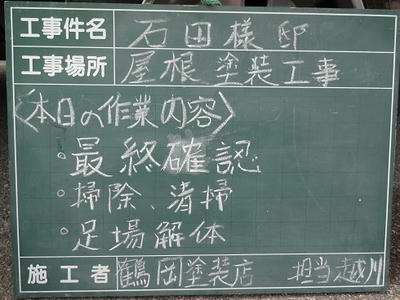 工事件名 石田様邸
工事場所 屋根塗装工事
〈本日の作業内容〉
・最終確認
・掃除、清掃
・足場解体
施工者 鶴岡塗装店 担当越川